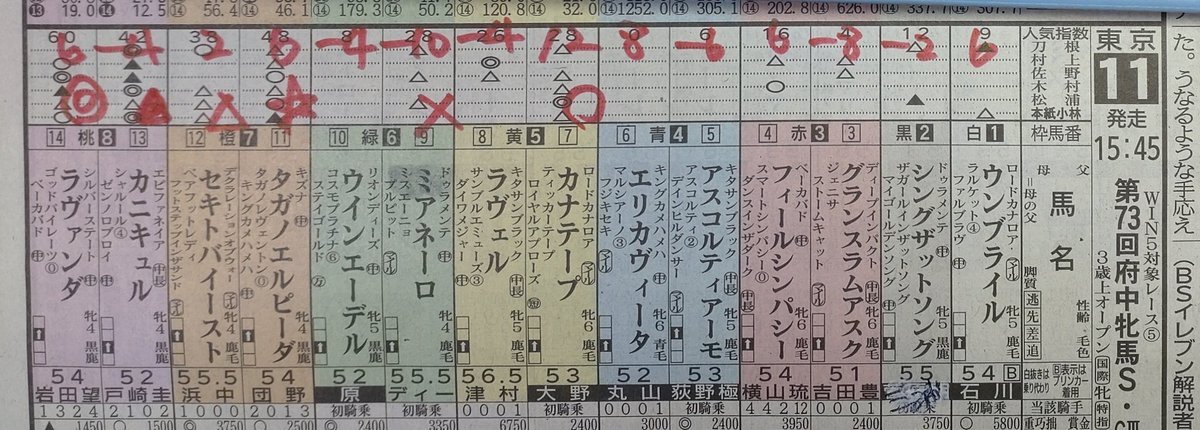 た。うなるような手応え
(BSイレブン解説者
東京
11
発走
15:45
WIN5対象レース⑤
第73回府中牝馬S・GⅢ
3歳上オープン
国際 牝 特指
人気指数
刀根
村上
佐野
木村
松浦
本紙小林
枠馬番
父
母
=母の父
馬名
脚質 逃 先 差 追
性齢 毛色
白抜きは乗り代わり
B表示はブリンカー着用
当該騎手
重巧拙 賞金
9
白1
ロードカナロア
ウンブライル
ラルケット④
ファルブラヴ
牝5 鹿毛
54 B
石川
初騎乗
5800
12
-2
黒2
ドゥラメンテ
シングザットソング
ザガールインザットソング
マイゴールデンソング
牝5 鹿毛
55
初騎乗
3750
4
-8
3
ディープインパクト
グランスラムアスク
ジェニサ
ストームキャット
牝6 鹿毛
53
吉田豊
0001
2400
16
6
4 赤3
ベーカバド
フィールシンパシー
スマートシンパシー⓪
牝6 鹿毛
54
横山琉
44212
3950
6
-6
5
キタサンブラック
アスコルティアーモ
アスコルティ②
デインヒルダンサー
牝5 鹿毛
54
荻野極
初騎乗
2400
0
8
6 青4
キングカメハメハ
エリカヴィータ
マルシアーノ③
フジキセキ
牝6 青毛
52
丸山
0001
28
12
7
ロードカナロア
カナテープ
ティッカーテープ
ロイヤルアプローズ
牝6 青鹿
53
大野
初騎乗
2400
26
-4
8 黄5
キタサンブラック
ラヴェル
サンブルエミューズ③
ダイワメジャー
牝5
56.5
津村
0001
6750
28
-10
9
ドゥラメンテ
ミアネーロ
ミスエーニョ
プルピット
マイル
牝4
55.5
ディー
初騎乗
3350
8
-4
10 緑6
リオンディーズ
ウインエーデル
コスモプラチナ⑥
ステイゴールド
牝5 黒鹿
52
原
初騎乗
2400
48
11
キズナ
タガノエルピーダ
タガノレヴェントン⓪
キングカメハメハ
牝4 鹿毛
54
団野
2013
2400
38
2
12 橙7
デクラレーションオブウォー
セキトバイースト
ベアフットレディ
フットステップスインザサンド
マイル
牝4 鹿毛
55.5
浜中
1000
42
-4
13
エピファネイア
カニキュル
シャルール④
ゼンノロブロイ
牝4
52
戸崎圭
2102
1500
60
6
14 桃8
シルバーステート
ラヴァンダ
ゴッドパイレーツ⓪
ベーカバド
牝4 黒鹿
54
岩田望
1324
1450